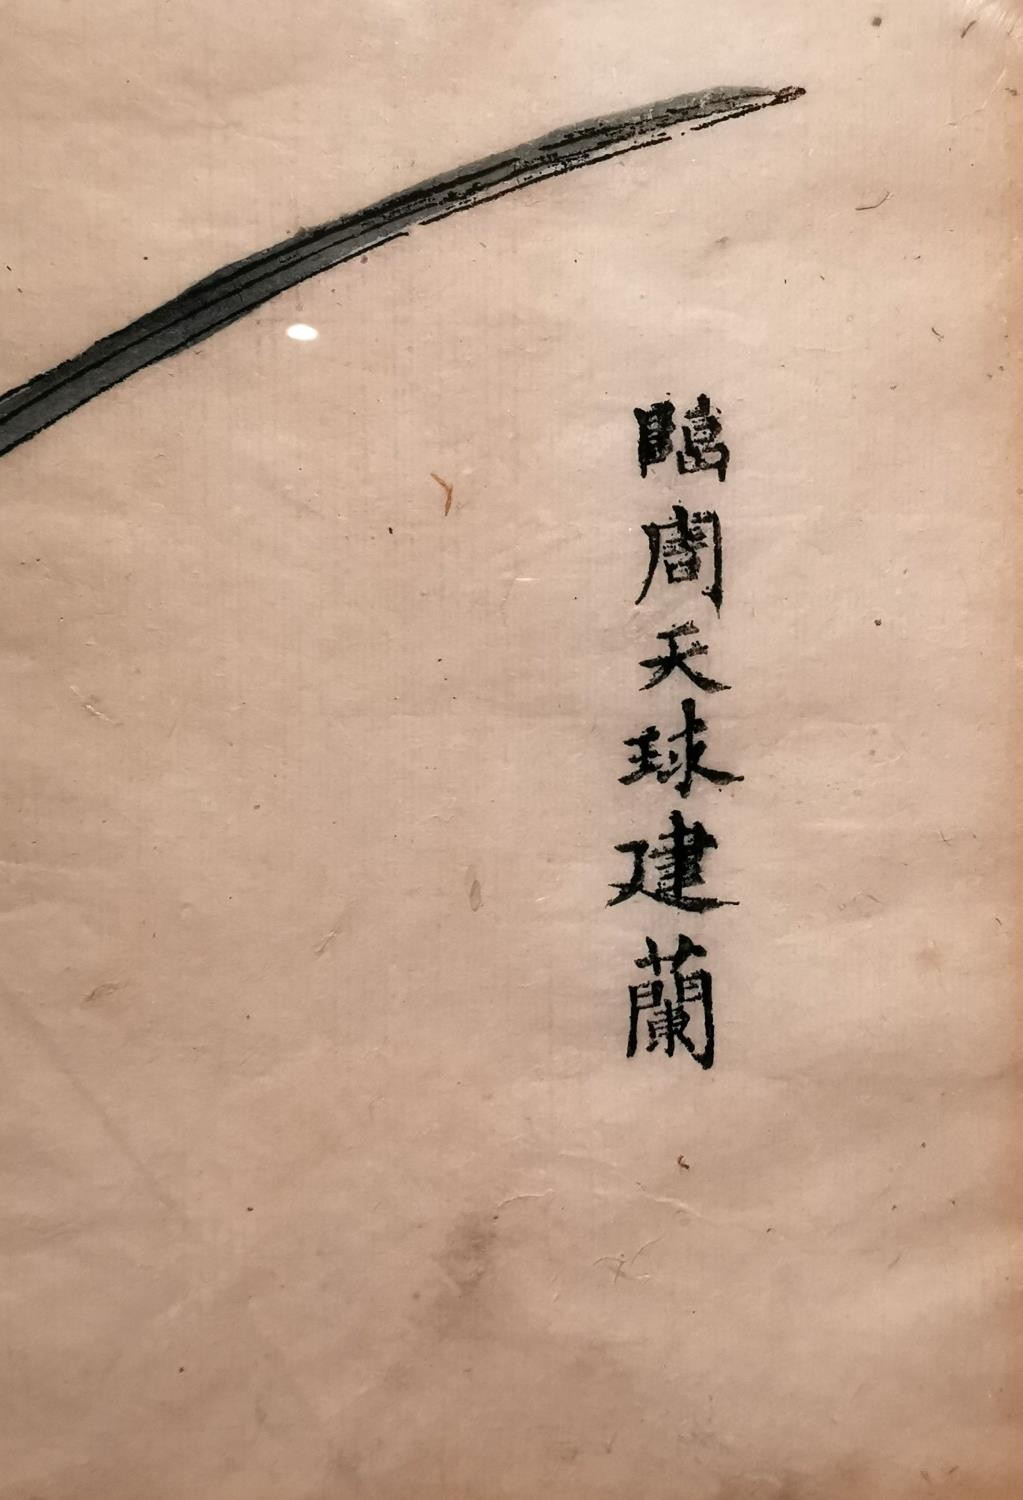 臨周天球建蘭